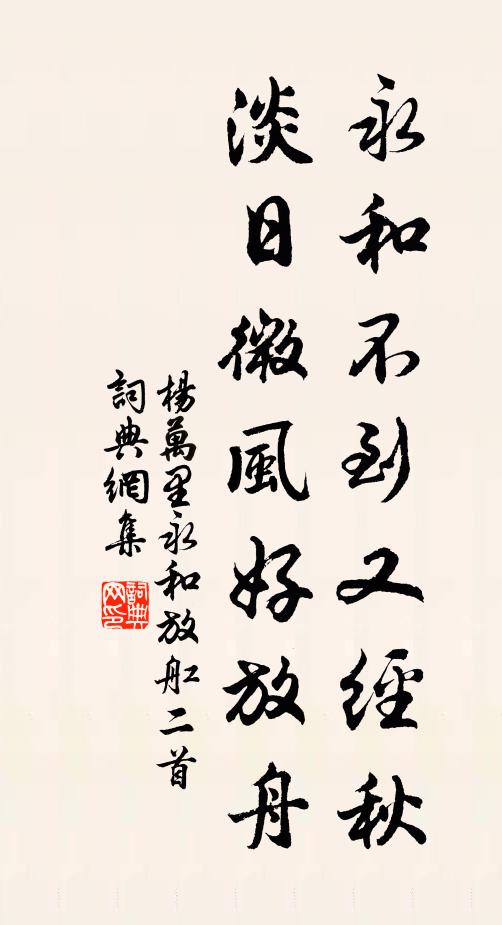 永和不到又經秋
淡日微風好放舟
楊萬里永和放舡二首
詞典網集
詞典网印